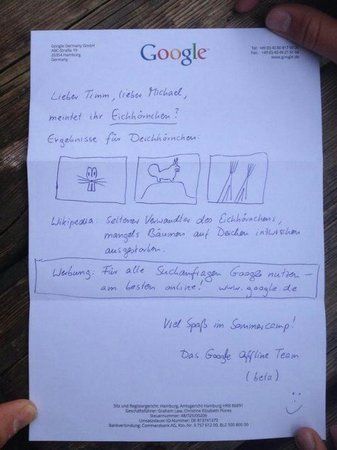 Google Germany GmbH
ABC-Straße 19
20354 Hamburg
Germany
Google
www.google.de
Lieber Timm, lieber Michael,
meintet ihr Eichhörnchen?
Ergebnisse für Deichhörnchen:
Wikipedia: Seltener Verwandter des Eichhörnchens,
mangels Bäumen auf Deichen inzwischen
ausgestorben.
Werbung: Für alle Suchanfragen Google nutzen –
am besten online! www.google.de
Viel Spaß im Sommercamp!
Das Google Offline Team
(beta)
Sitz und Registergericht: Hamburg, Amtsgericht Hamburg HRB 86891
Geschäftsführer: Graham Law, Christine Elizabeth Flores
Steuernummer:
Umsatzsteuer ID-Nummer:
Bankverbindung: Commerzbank AG,